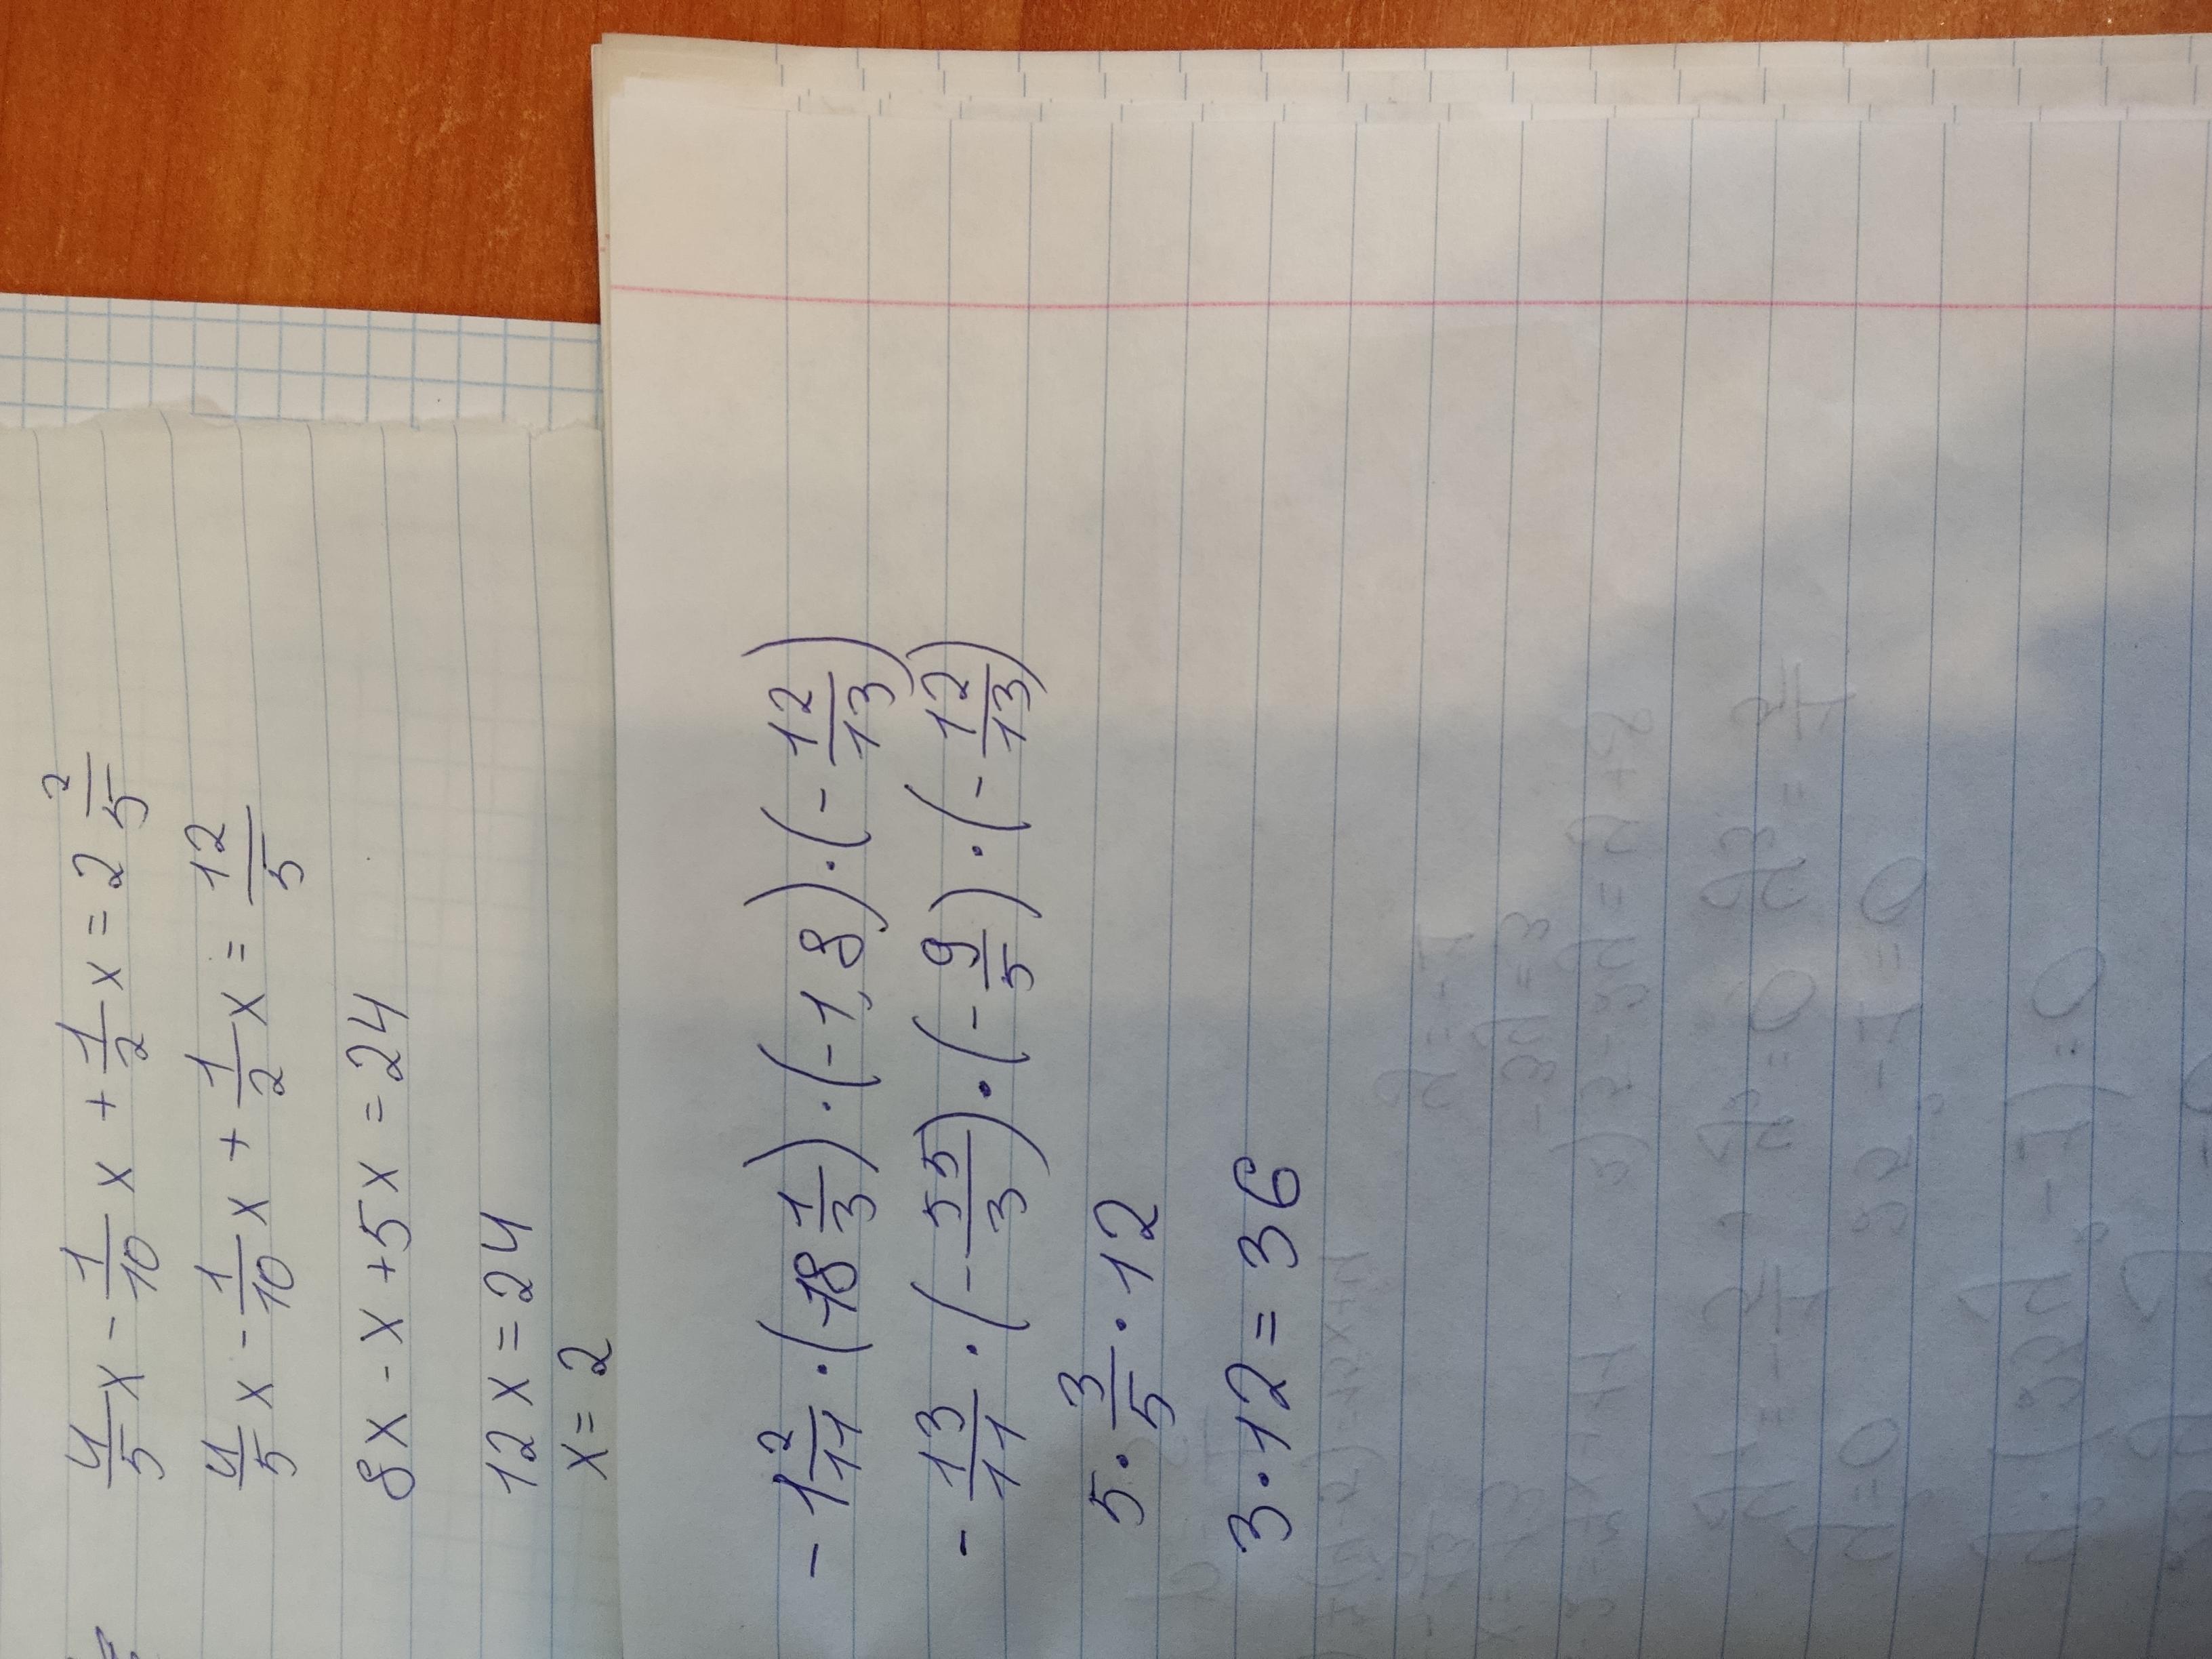 4/5 x - 1/10 x + 1/2 x = 2 2/5
4/5 x - 1/10 x + 1/2 x = 12/5
8x - x + 5x = 24
12x = 24
x = 2
- 1 2/11 · (-18 1/3) · (-1,8) · (- 12/13)
- 13/11 · (- 55/3) · (- 9/5) · (- 12/13)
5 · 3/5 · 12
3 · 12 = 36